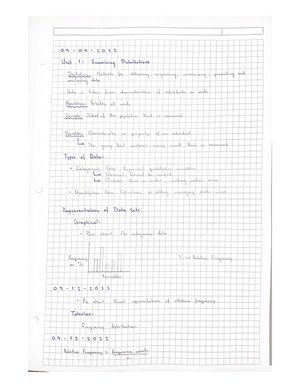 09-09-2022
Unit 1: Examining Distributions
Statistics: Methods for obtaining, organizing, summarizing, presenting and
analyzing data
Data: taken from characteristics of individuals or units
Population: Totality of units
Sample: Subset of the population that is measured
Variable: Characteristic or property of an individual
Types of Data:
Categorical Data: Represent qualitative variables
Nominal: Cannot be ranked
Representation of Data Sets
Graphical:
Bar chart: For categorical data
Frequency
or %
% → Relative Frequency
Variables
09-12-2022
Pie chart: Visual representation of relative frequency
Tabular:
Frequency distribution
09-13-2022
Relative Frequency = frequency counts
n